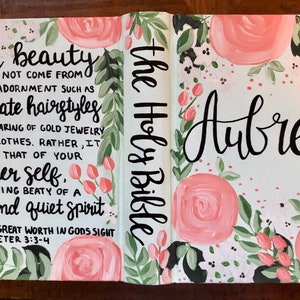 beauty
NOT COME FROM
ADORNMENT SUCH AS
ate hairstyles
ARING OF GOLD JEWELRY
LOTHES. RATHER, IT
THAT OF YOUR
er self,
ING BEATY OF A
nd quiet spirit
GREAT WORTH IN GODS SIGHT
ETER 3:3-4
the Holy Bible
Aubre